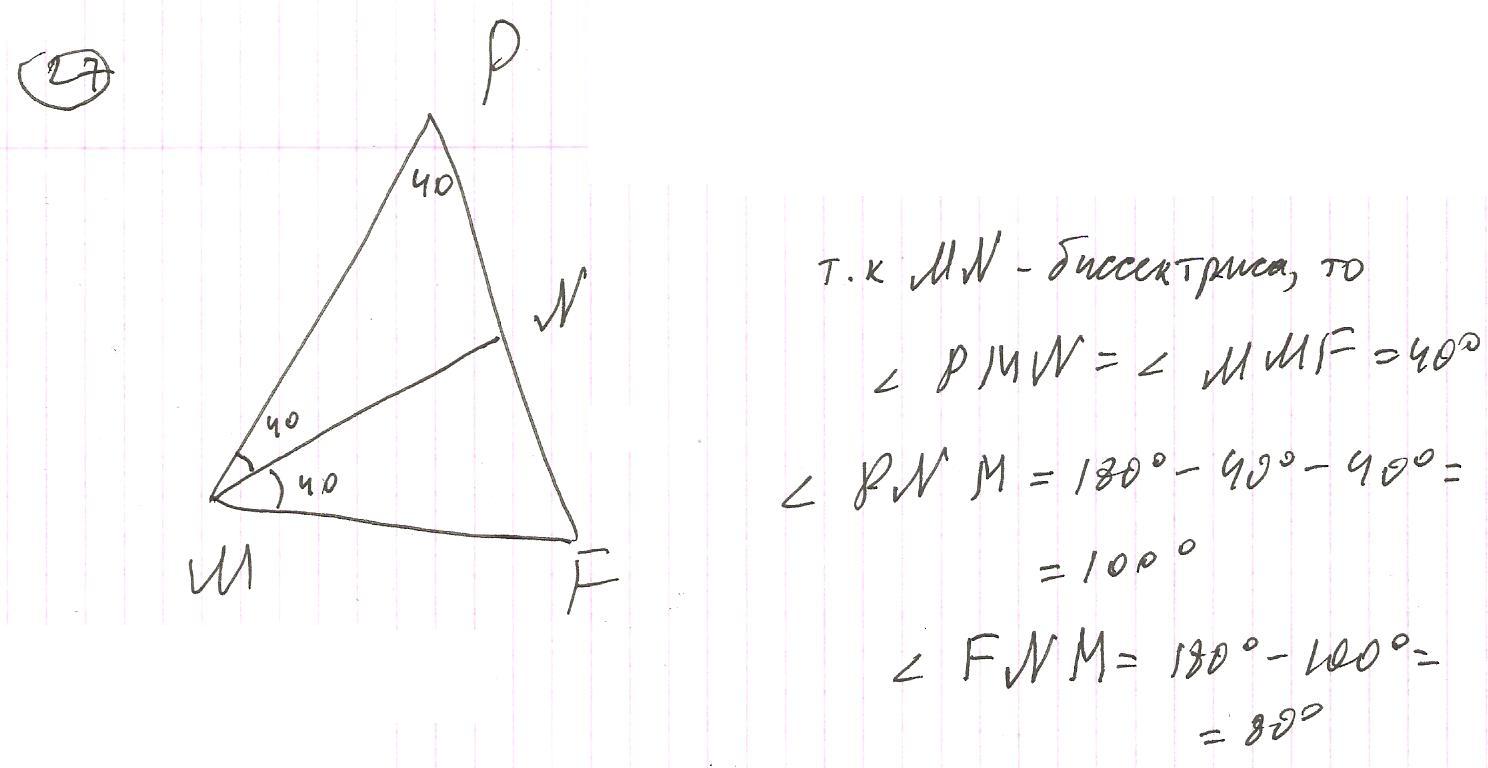 27
P
40
N
40
40
M
F
т.к MN - биссектриса, то
∠ PMN = ∠ MMF = 40°
∠ PNM = 180° - 40° - 40° =
= 100°
∠ FNM = 180° - 100° =
= 80°